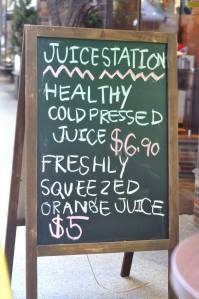 JUICESTATION
HEALTHY
COLDPRESSED
JUICE $6.90
FRESHLY
SQUEEZED
ORANGE JUICE
$5